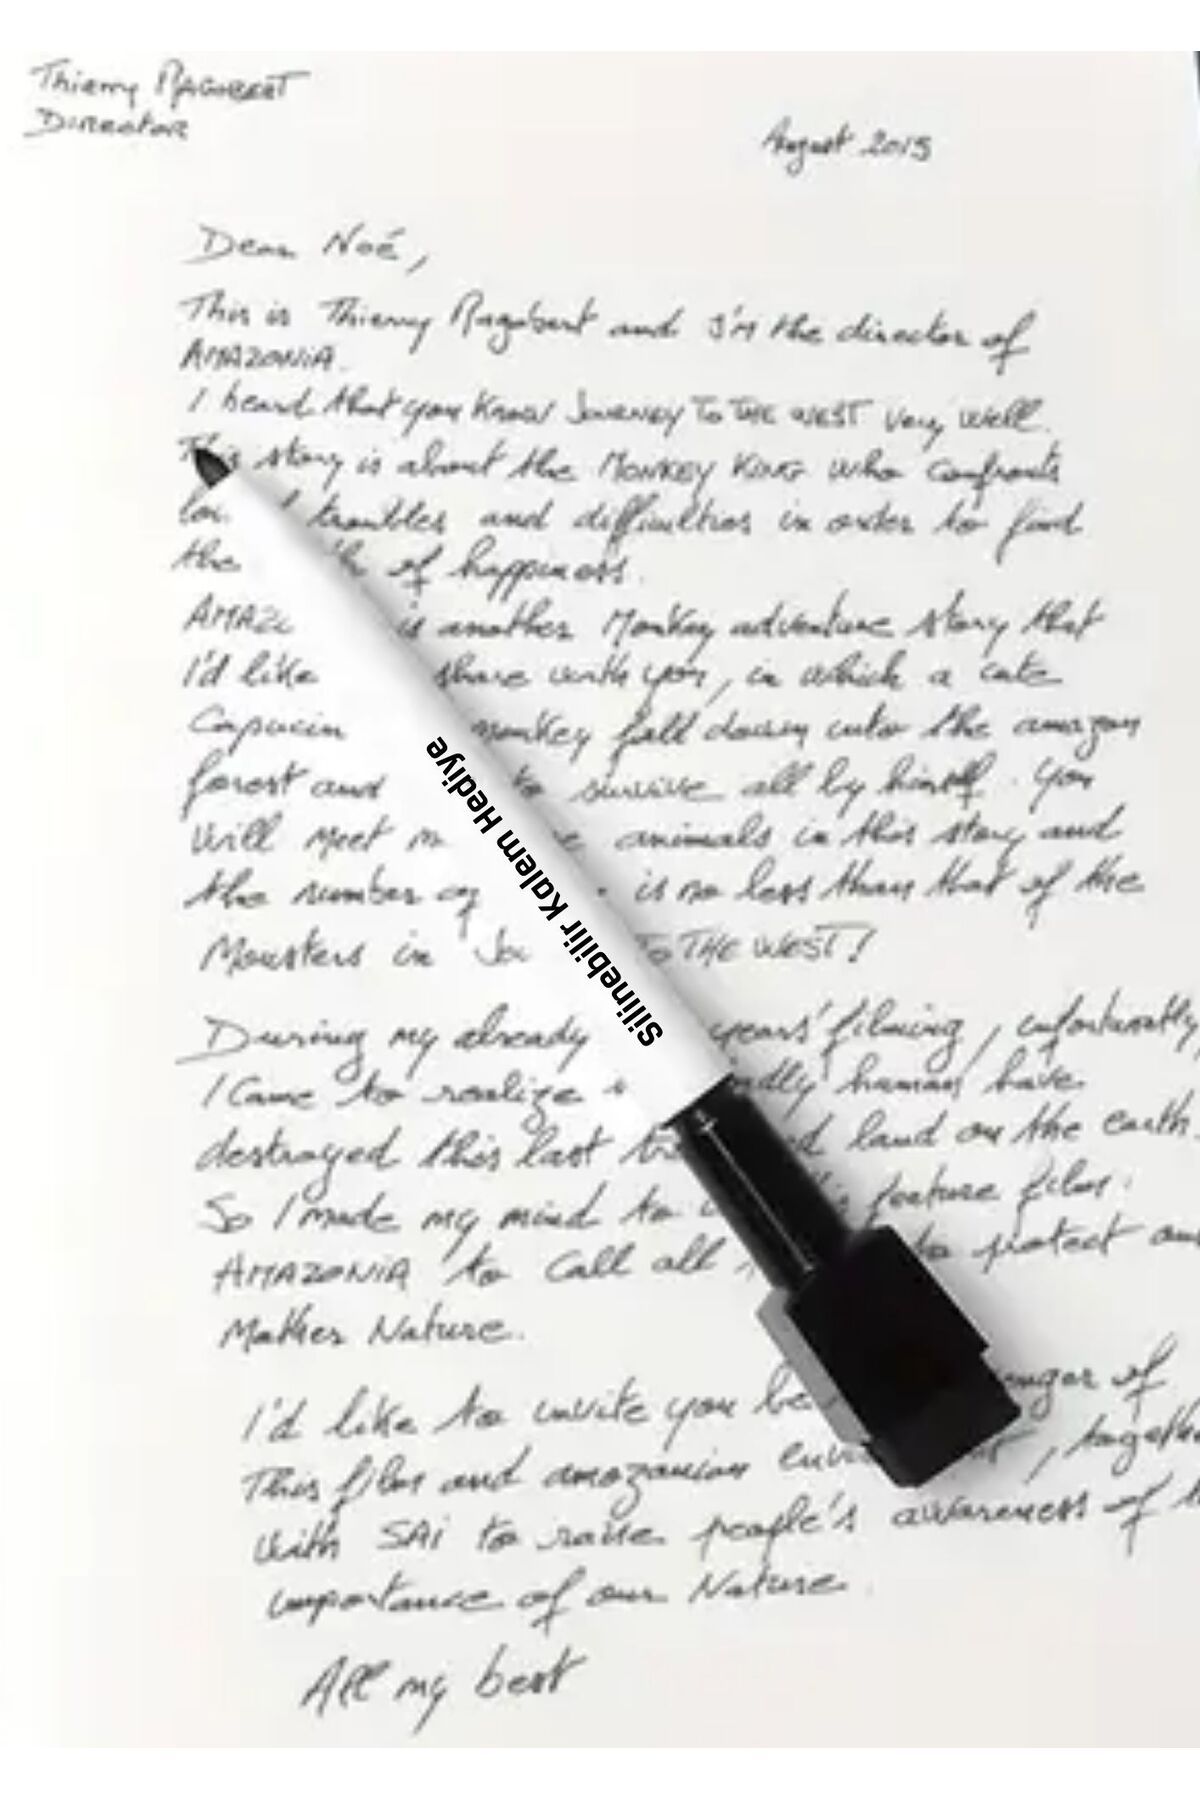 Thierry RAGOBERT
Director
August 2015
Dear Noé,
This is Thierry Ragobert and I'M the director of
AMAZONIA.
I heard that you Know JOURNEY TO THE WEST very well.
story is about the MONKEY KING who confronts
troubles and difficulties in order to find
the of happiness.
is another Monkey adventure story that
I'd like share with you, in which a cute
Capucin monkey fall down into the amazon
forest and to survive all by himself. You
will meet animals in this story and
the number is no less than that of the
Monsters in TO THE WEST!
During my already years' filming, unfortunatly,
I came to realize human have
destroyed this last land on the earth.
So I made my mind to feature film.
AMAZONIA to call all to protect our
Mother Nature.
I'd like to invite you of
This film and amazonian
with SAI to raise people's awareness of
importance of our Nature.
All my best
Silinebilir Kalem Hediye